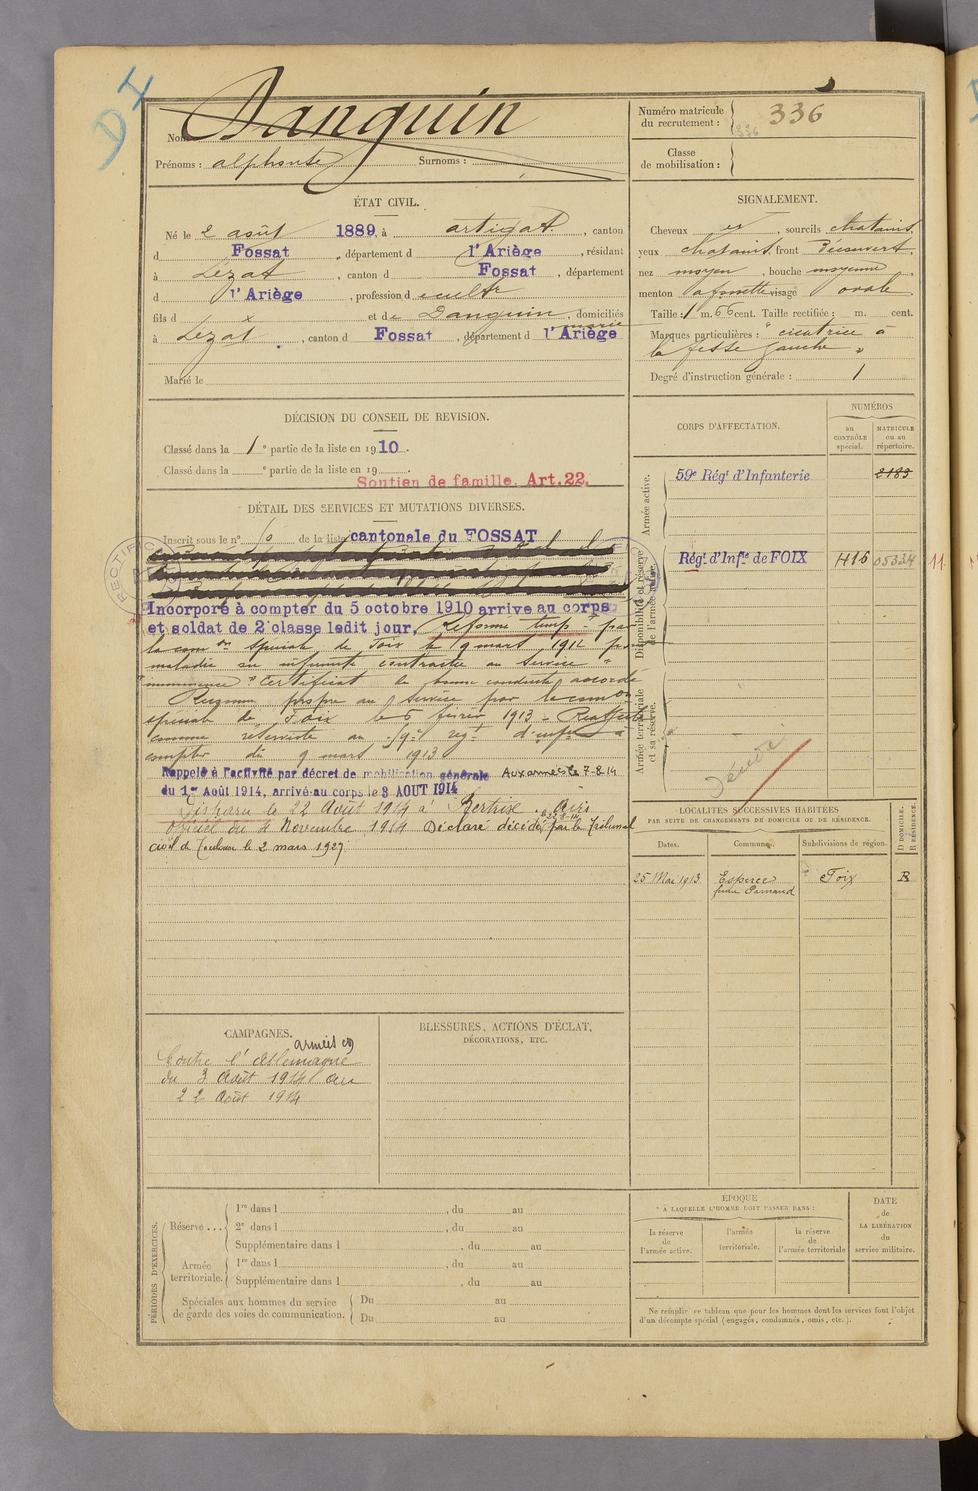 DI
Nom : Danguin
Prénoms : alphonse Surnoms :
Numéro matricule
du recrutement : 336
336
Classe
de mobilisation :
ÉTAT CIVIL.
Né le 2 août 1889, à artigat, canton
d Fossat, département d l'Ariège, résidant
à Lézat, canton d Fossat, département
d l'Ariège, profession d cultr
fils d x et de Danguin, domiciliés
marie
à Lezat, canton d Fossat, département d l'Ariège
Marié le
SIGNALEMENT.
Cheveux et, sourcils chatains,
yeux chatains, front découvert,
nez moyen, bouche moyenne,
menton a fossette visage ovale
Taille : 1 m. 66 cent. Taille rectifiée : m. cent.
Marques particulières : " cicatrice à
la fesse gauche "
Degré d'instruction générale : 1
DÉCISION DU CONSEIL DE REVISION.
Classé dans la 1e partie de la liste en 1910.
Classé dans la e partie de la liste en 19 .
Soutien de famille. Art.22.
DÉTAIL DES SERVICES ET MUTATIONS DIVERSES.
Inscrit sous le n° de la liste cantonale du FOSSAT
Incorporé à compter du 5 octobre 1910 arrive au corps
et soldat de 2e classe ledit jour, Réformé temp re par
la comon spéciale de Foix le 9 mars 1912 pr
maladie ou infirmité contractée au service "
Certificat de bonne conduite accordé
Reconnu propre au service par la comon
spéciale de Foix le 5 février 1913 - Réaffecté
comme réserviste au 59e régt d'infie à
compter du 9 mars 1913
Rappelé à l'activité par décret de mobilisation générale Aux armées le 7-8-14
du 1er Août 1914, arrivé au corps le 3 AOUT 1914
Disparu le 22 Août 1914 à Bertrix Avis
officiel du 4 Novembre 1914 Déclaré décédé par le Tribunal
civil de Toulouse le 2 mars 1927
CORPS D'AFFECTATION.
NUMÉROS
au
CONTRÔLE
spécial.
MATRICULE
ou au
répertoire.
Armée active.
59e Régt d'Infanterie 2183
Disponibilité et réserve
de l'armée active.
Régt d'Infie de FOIX H16 05334 11.
Armée territoriale
et sa réserve.
LOCALITÉS SUCCESSIVES HABITÉES
PAR SUITE DE CHANGEMENTS DE DOMICILE OU DE RÉSIDENCE.
D DOMICILE.
R RÉSIDENCE.
Dates. Commune. Subdivisions de région.
25 Mai 1913 Foix R
CAMPAGNES.
Contre l'Allemagne
du 3 Août 1914 au
22 Août 1914
BLESSURES, ACTIONS D'ÉCLAT,
DÉCORATIONS, ETC.
PÉRIODES D'EXERCICES.
Réserve ...
1re dans l , du au
2e dans l , du au
Supplémentaire dans l , du au
Armée
territoriale.
1re dans l , du au
Supplémentaire dans l , du au
Spéciales aux hommes du service
de garde des voies de communication.
Du au
Du au
EPOQUE
A LAQUELLE L'HOMME DOIT PASSER DANS :
la réserve
de
l'armée active.
l'armée
territoriale.
la réserve
de
l'armée territoriale
DATE
de
LA LIBÉRATION
du
service militaire.
Ne remplir ce tableau que pour les hommes dont les services font l'objet
d'un décompte spécial (engagés, condamnés, omis, etc.).